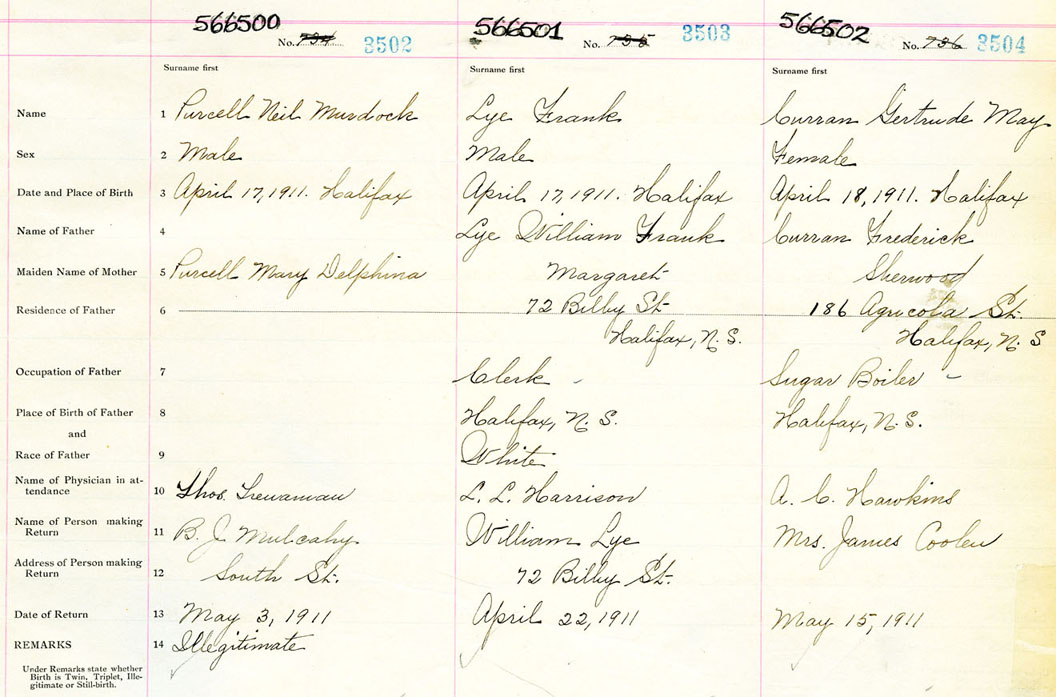 566500 566501 566502
No. 734 3502 No. 735 3503 No. 736 3504
Surname first Surname first Surname first
Name 1 Purcell Neil Murdock Lye Frank Curran Gertrude May
Sex 2 Male Male Female
Date and Place of Birth 3 April 17, 1911. Halifax April 17, 1911. Halifax April 18, 1911. Halifax
Name of Father 4 Lye William Frank Curran Frederick
Maiden Name of Mother 5 Purcell Mary Delphina Margaret Sherwood
Residence of Father 6 72 Bilby St. 186 Agricola St.
Halifax, N.S. Halifax, N.S
Occupation of Father 7 Clerk - Sugar Boiler -
Place of Birth of Father 8 Halifax, N.S. Halifax, N.S.
and
Race of Father 9 White
Name of Physician in at-
tendance 10 Thos. L. L. Harrison A. C. Hawkins
Name of Person making
Return 11 B. J. Mulcahy William Lye Mrs. James Coolen
Address of Person making
Return 12 South St. 72 Bilby St.
Date of Return 13 May 3, 1911 April 22, 1911 May 15, 1911
REMARKS 14 Illegitimate
Under Remarks state whether
Birth is Twin, Triplet, Ille-
gitimate or Still-birth.